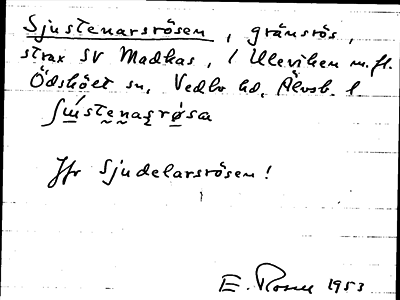 Sjustenarsrösen, gränsrös,
strax SV Madkas, / Uleviken m.fl.
Ödskölt sn, Vedbo hd, Älvsb. l
ʃɯ́stenasrø̀sa
Jfr Sjudelarsrösen!
E. Rosell 1953